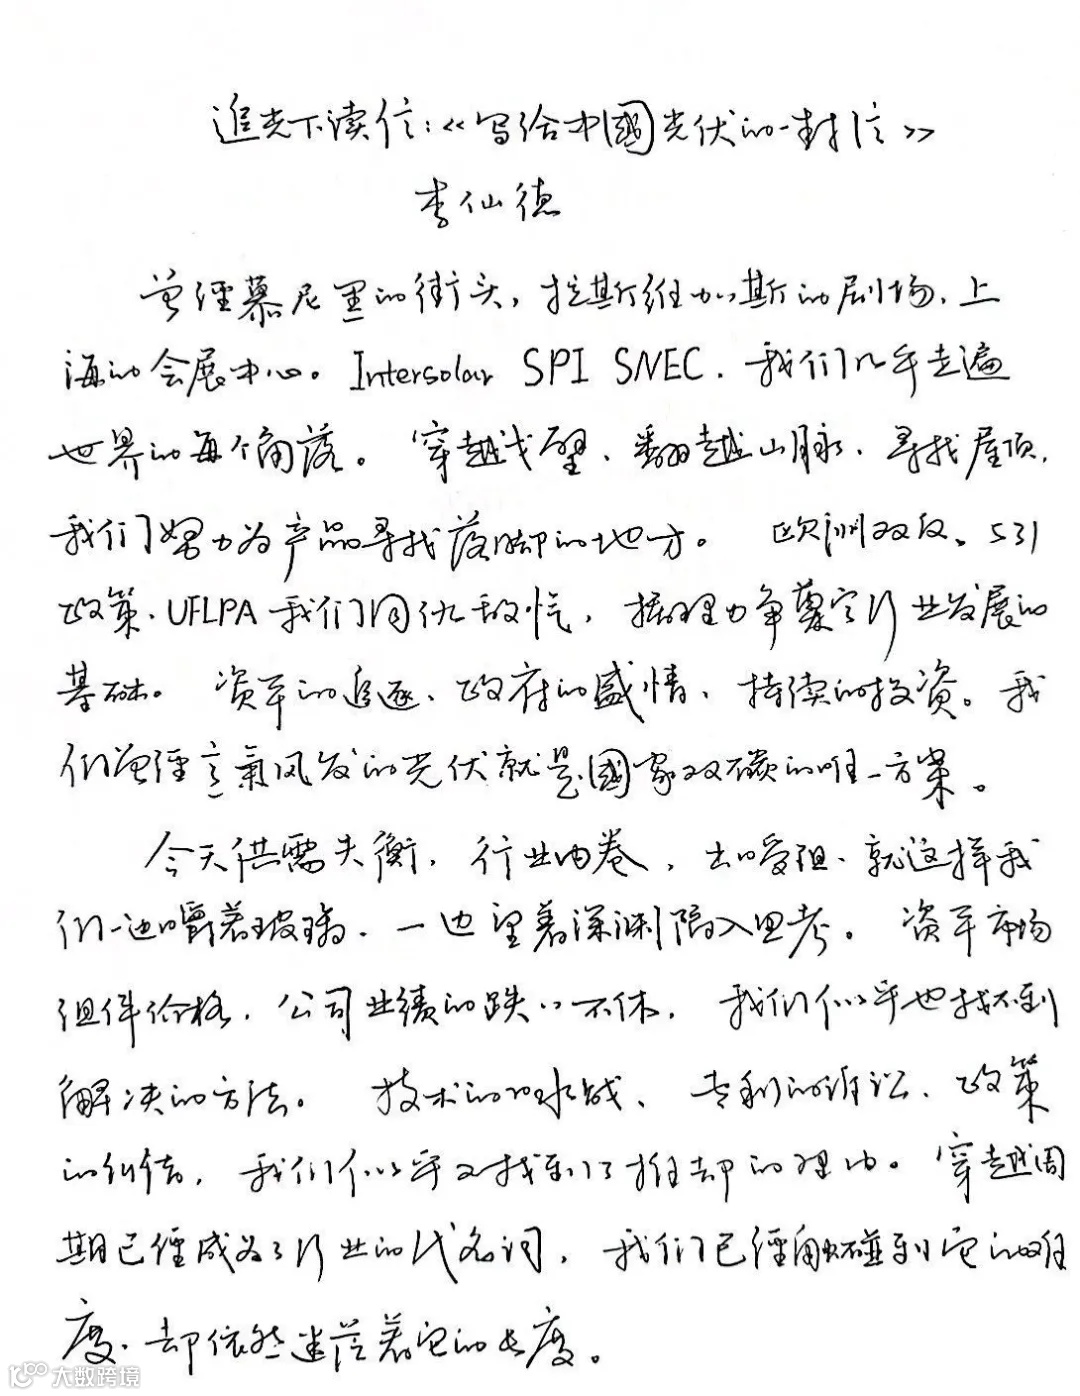 追光下读信：《写给中國光伏的一封信》
李仙德
曾经慕尼黑的街头，拉斯维加斯的剧场，上
海的会展中心。Intersolar SPI SNEC，我们几乎走遍
世界的每个角落。穿越戈壁、翻越山脉、寻找屋顶，
我们努力为产品寻找落脚的地方。欧洲双反、531
政策、UFLPA 我们同仇敌忾，据理力争奠定行业发展的
基础。资本的追逐、政府的盛情、持续的投资。我
们曾经意氣风发的光伏就是國家双碳的唯一方案。
今天供需失衡，行业内卷，出口受阻，就这样我
们一边嚼着玻璃，一边望着深渊陷入思考。资本市场
组件价格，公司业绩的跌跌不休，我们似乎也找不到
解决的方法。技术的口水战、专利的诉讼、政策
的纠结，我们似乎又找到了推却的理由。穿越周
期已经成为了行业的代名词，我们已经触碰到它的
度，却依然迷茫着它的长度。
大数跨境